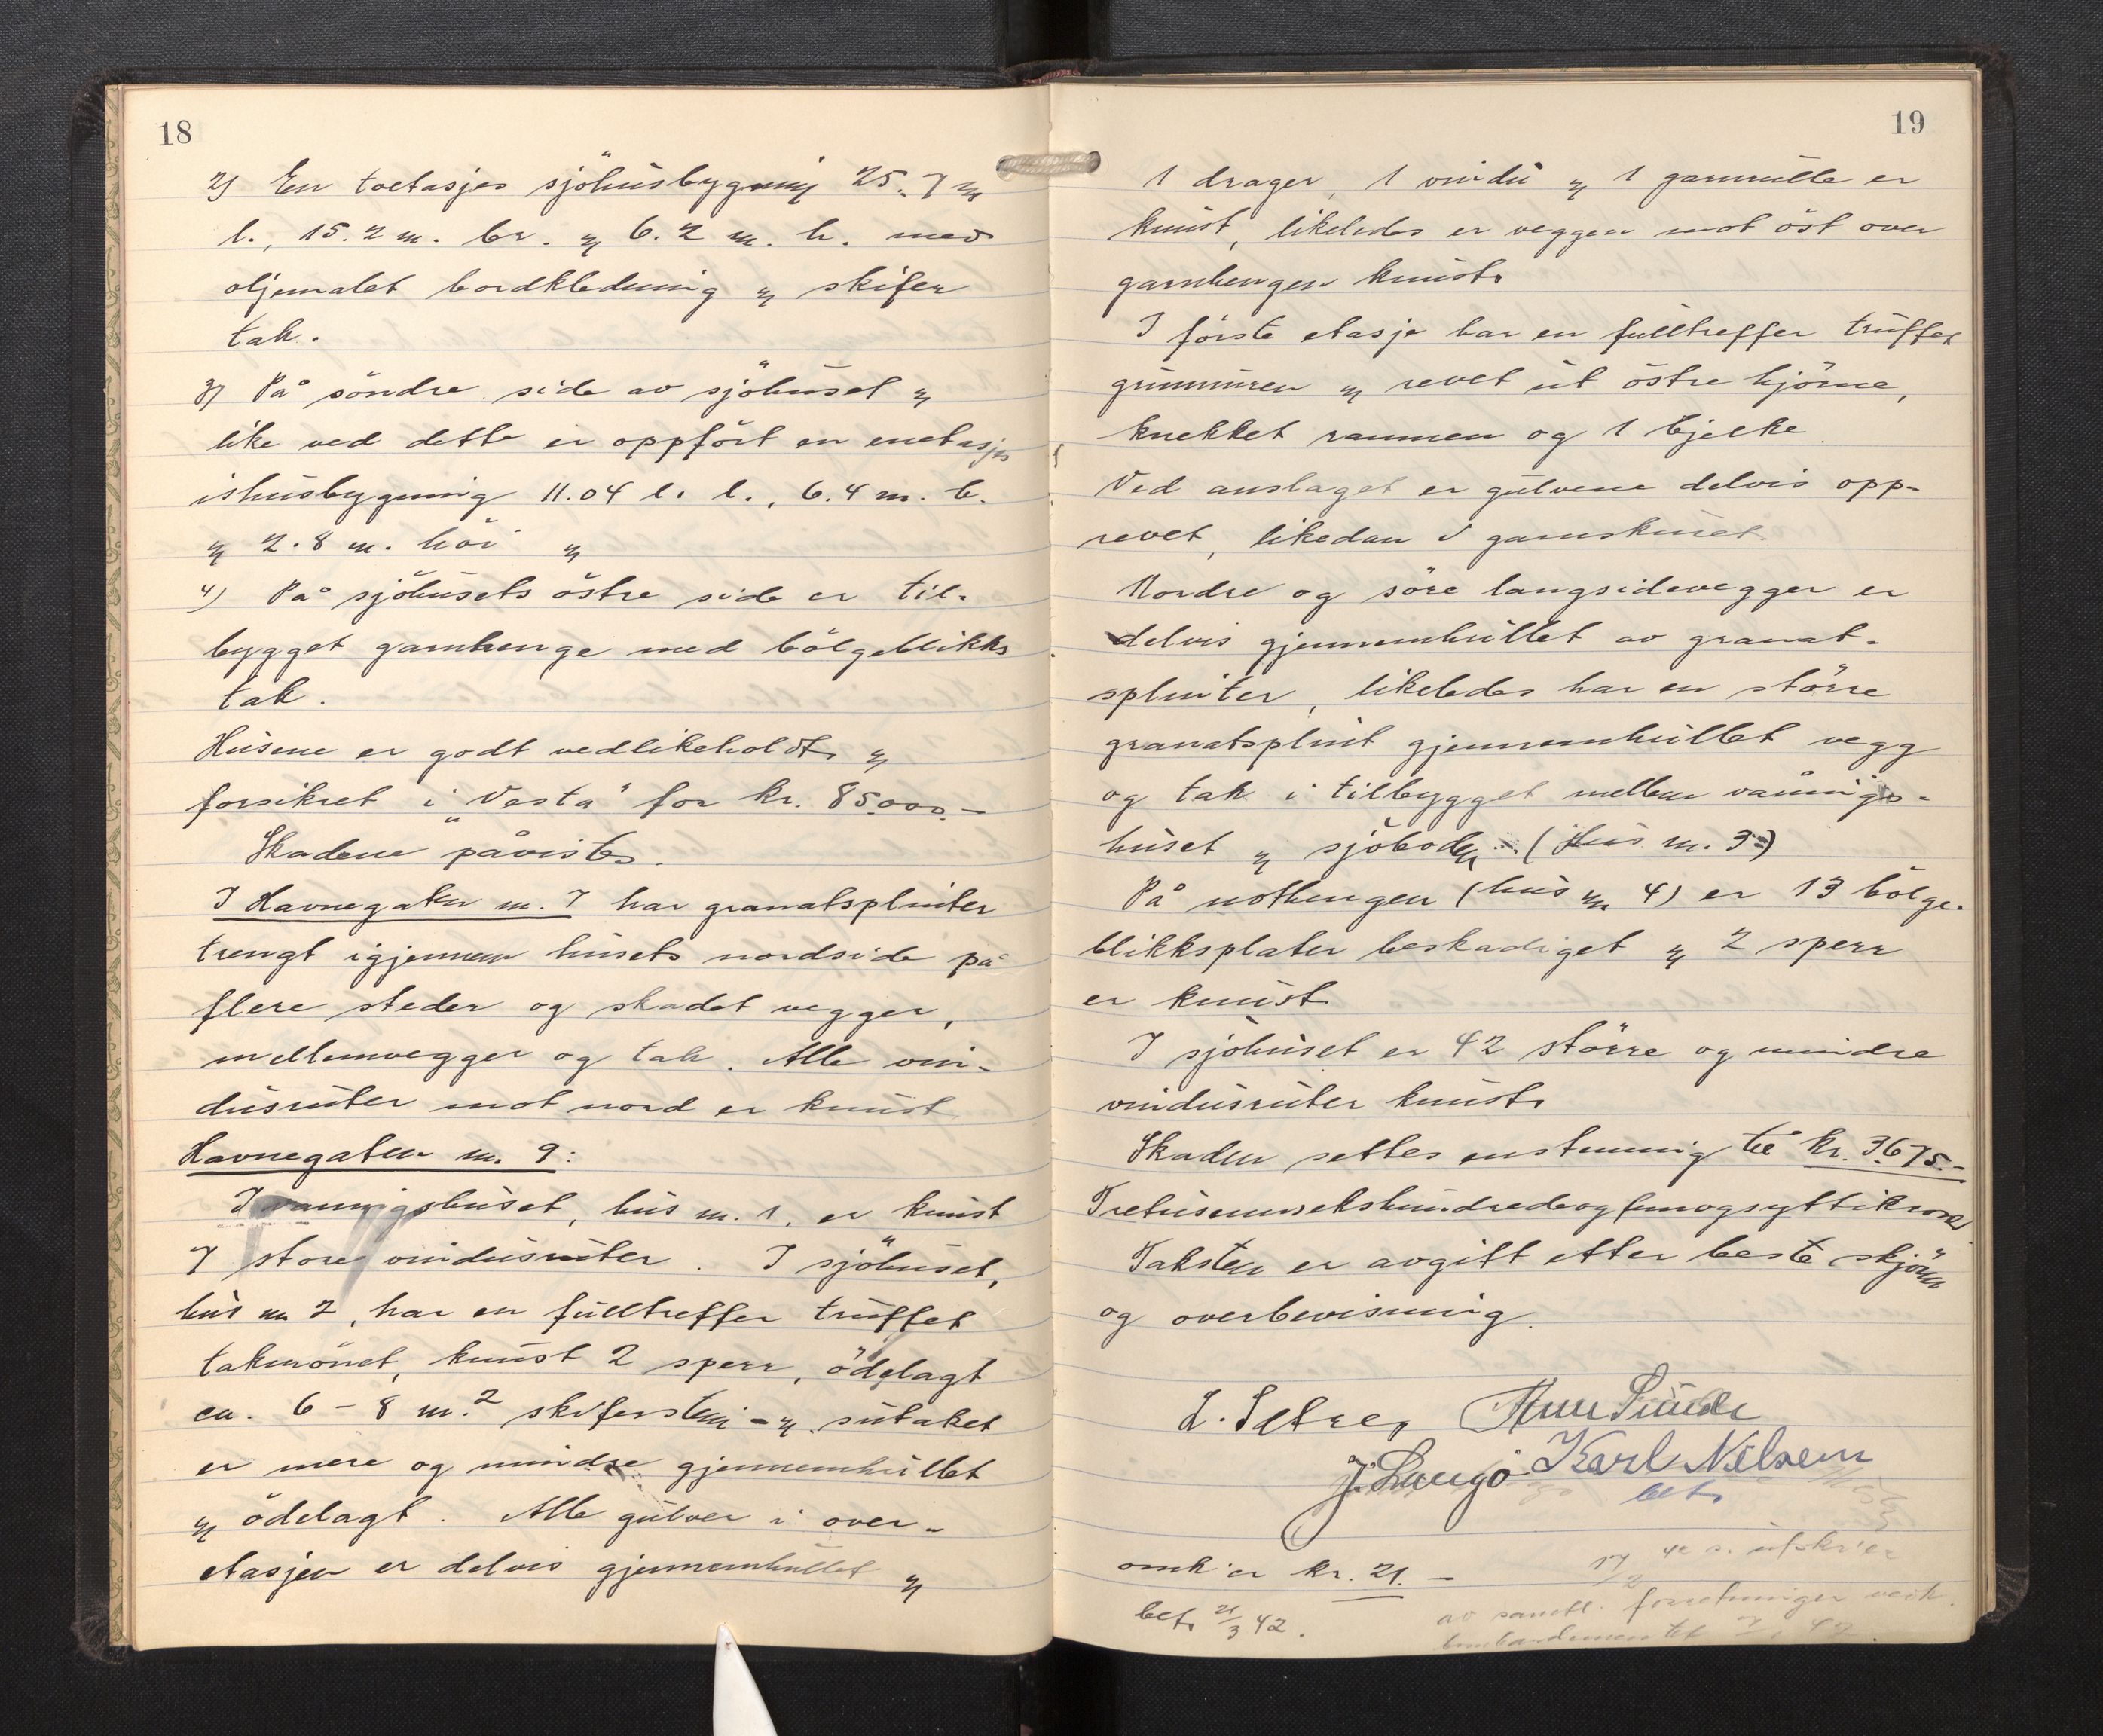 18
2) En toetasjes sjöhusbygning 25.7 m
l., 15.2 m. br. og 6.2 m. h. med
oljemalet bordkledning og skifer
tak.
3) På söndre side av sjöhuset og
like ved dette er oppfört en enetasjes
ishusbygning 11.04 l. l., 6.4 m. b.
og 2.8 m. höi og
4) På sjöhusets östre side er til-
bygget garnhenge med bölgeblikks
tak.
Husene er godt vedlikeholdt og
forsikret i „Vesta" for kr. 85.000.-
Skadene påvistes.
I Havnegaten nr. 7 har granatsplinter
trengt igjennem husets nordside på
flere steder og skadet vegger,
mellemvegger og tak. Alle vin-
dusruter mot nord er knust
Havnegaten nr. 9:
I vaaningshuset, hus nr. 1. er knust
7 store vindusruter. I sjöhuset,
hus nr 2, har en fulltreffer truffet
takmönet, knust 2 sperr, ödelagt
ca. 6 - 8 m.² skiferstein - og sutaket
er mere og mindre gjennemhullet
og ödelagt. Alle gulver i over-
etasjen er delvis gjennemhullet og
19
1 drager, 1 vindu og 1 garnrulle er
knust, likeledes er veggen mot öst over
garnhengen knust.
I förste etasje har en fulltreffer truffet
grunmuren og revet ut östre hjörne,
knekket rammen og 1 bjelke.
Ved anslaget er gulvene delvis opp-
revet, likedan i garnskuret.
Nordre og söre langsidevegger er
delvis gjennemhullet av granat-
splinter, likeledes har en större
granatsplint gjennemhullet vegg
og tak i tilbygget mellem vånings-
huset og sjöboden (Hus nr. 3)
På nothengen (hus nr 4) er 13 bölge-
blikksplater beskadiget og 2 sperr
er knust
I sjöhuset er 42 större og mindre
vindusruter knust.
Skaden settes enstemmig til kr. 3675.-
Tretusensekshundredeogfemogsyttikroner
Taksten er avgitt etter beste skjönn
og overbevisning.
L. Sætre,
J. Langö Karl Nilsen
bet.
omk. er kr. 21.-
bet. 21/3 42.
17/2 42 s. utskr. er
av samtl. forretninger vedk.
bombardementet